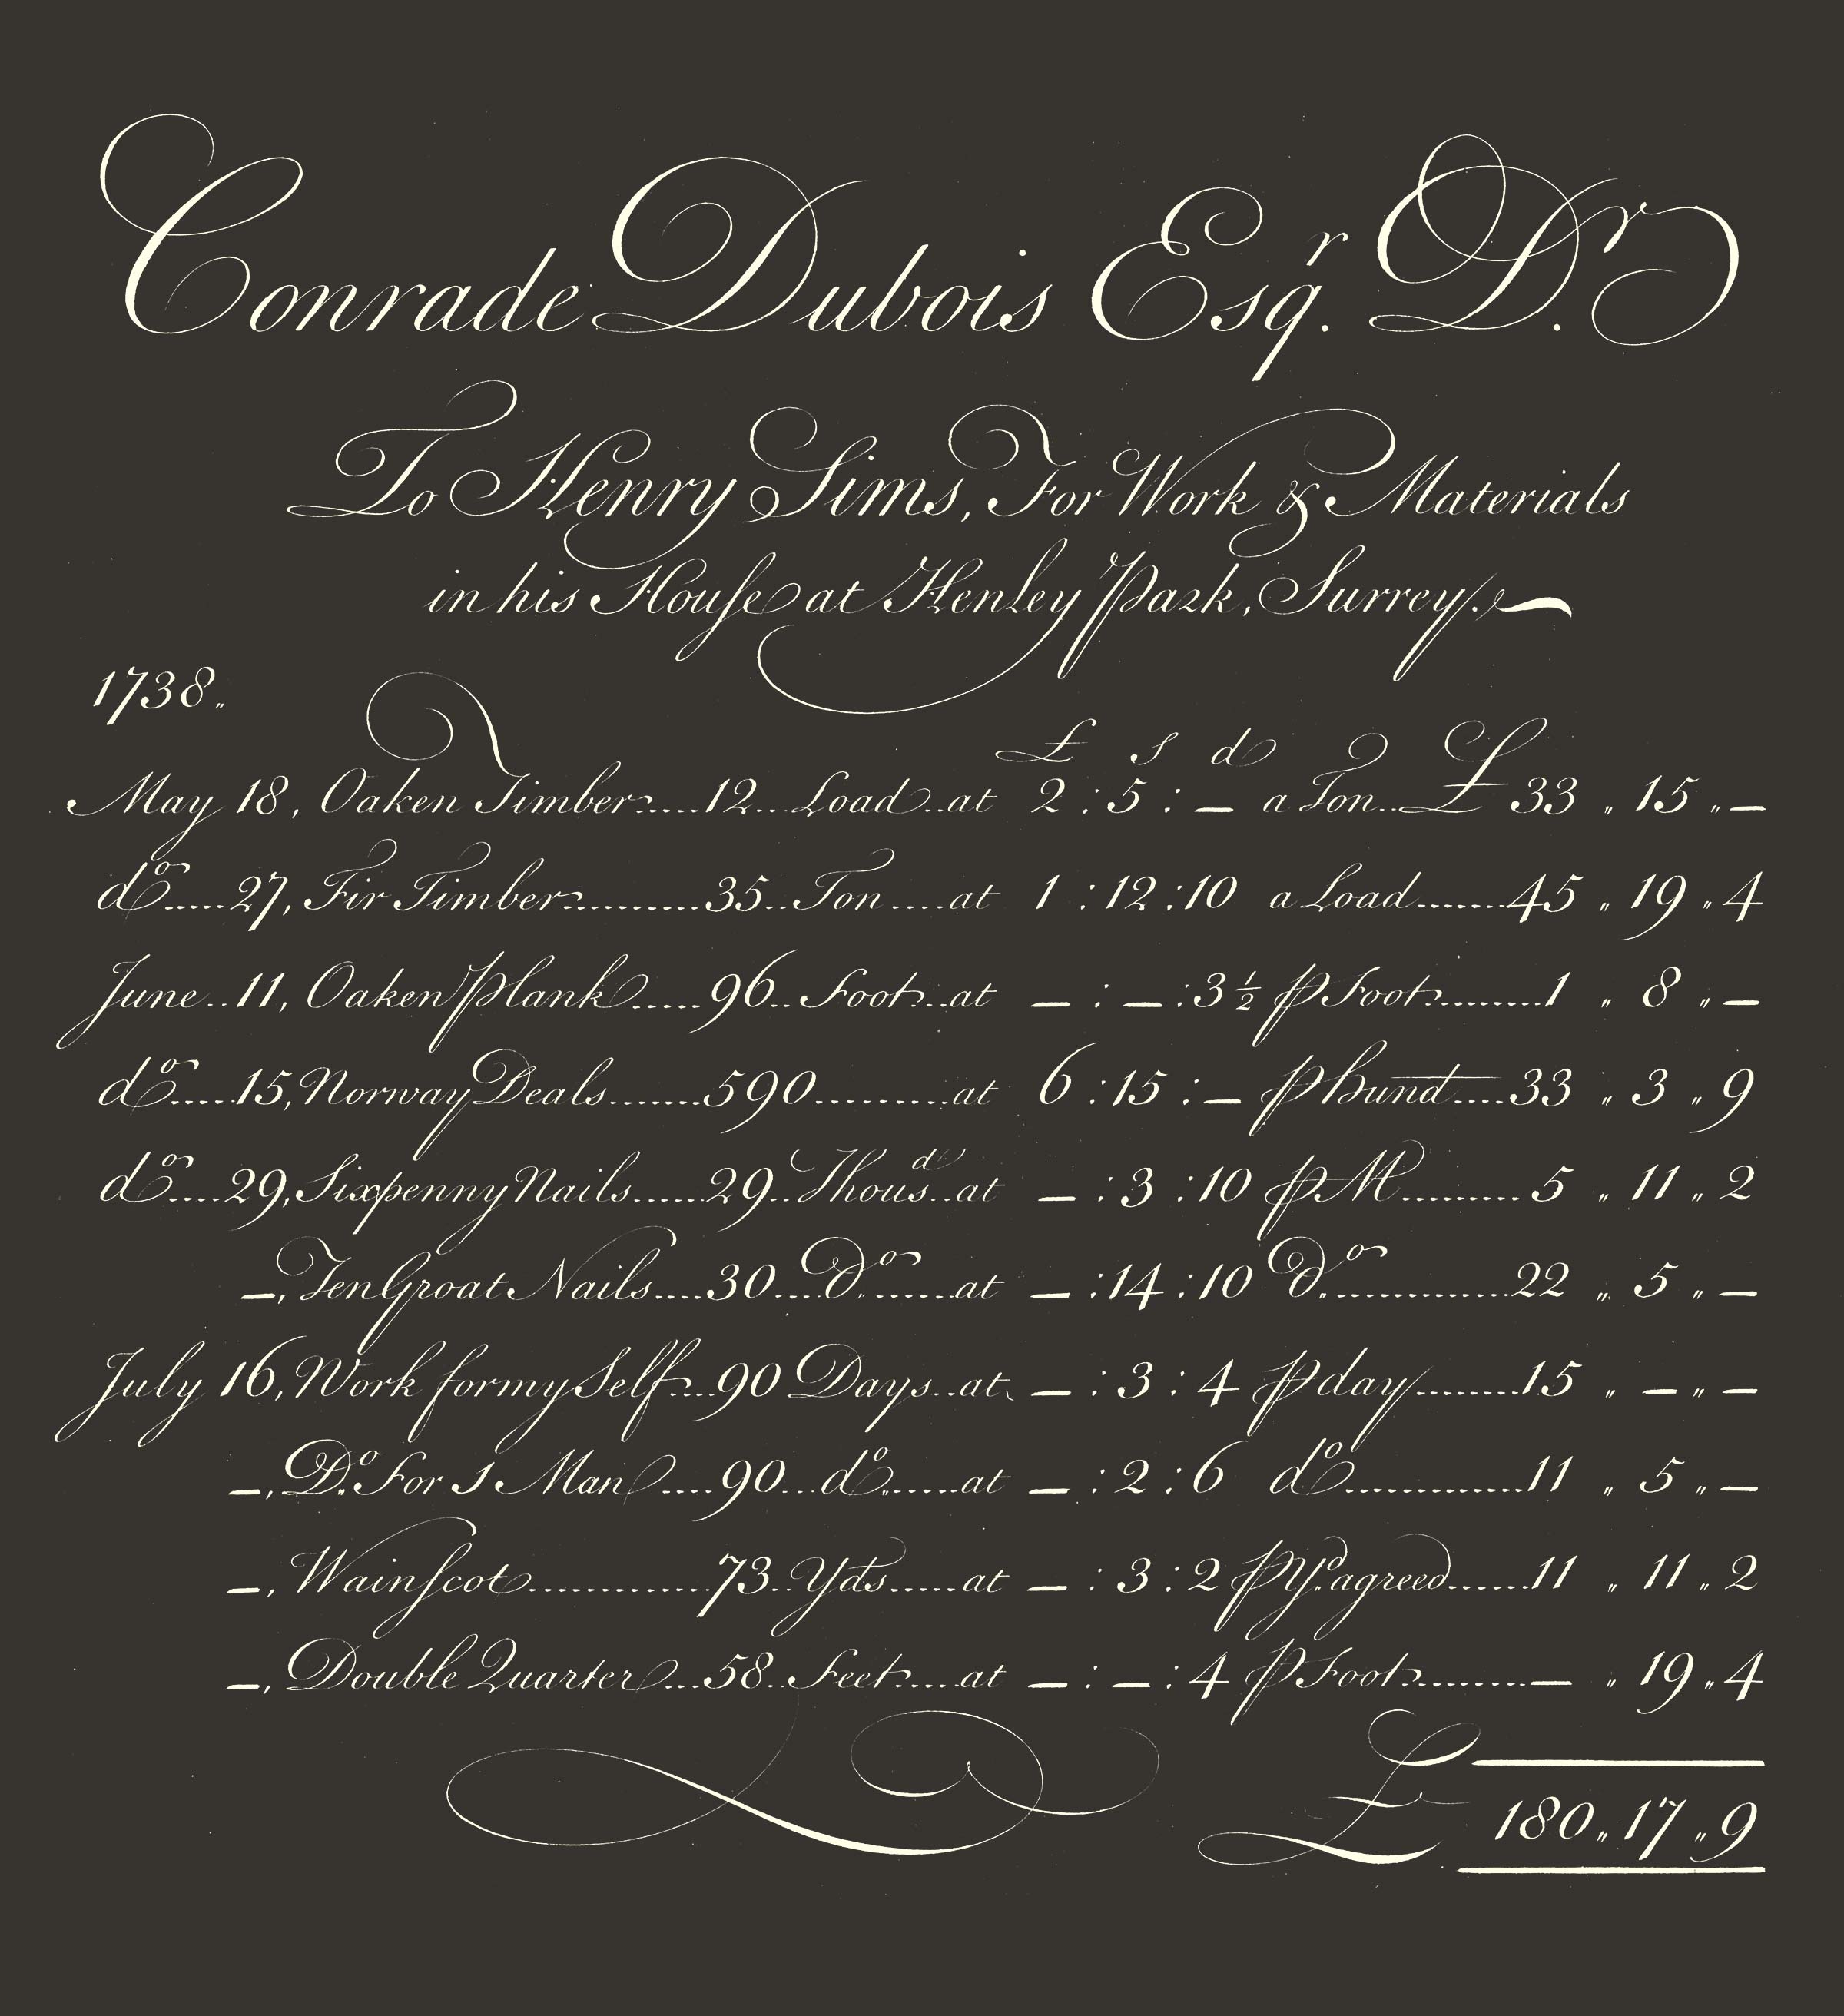 Conrade Dubois Esqr. Dr.
To Henry Sims, For Work & Materials
in his Houſe at Henley Park, Surrey.
1738.
£ s d
May 18, Oaken Timber.....12...Load..at 2 : 5 : – a Ton...£ 33 „ 15 „ –
do.....27, Fir Timber...........35..Ton.....at 1 : 12 : 10 a Load........45 „ 19 „ 4
June..11, Oaken Plank.....96..Foot...at – : – : 3½ ⅌ Foot.........1 „ 8 „ –
do.....15, Norway Deals........590...........at 6 : 15 : – ⅌ hund.....33 „ 3 „ 9
do.....29, Sixpenny Nails......29..Thousd..at – : 3 : 10 ⅌ M..........5 „ 11 „ 2
–, Ten Groat Nails....30....Do........at – : 14 : 10 Do...............22 „ 5 „ –
July 16, Work for my Self....90 Days..at – : 3 : 4 ⅌ day.........15 „ – „ –
–, Do. For 1 Man.....90...do.......at – : 2 : 6 do...............11 „ 5 „ –
–, Wainſcot................73..Yds......at – : 3 : 2 ⅌ Yd. agreed.......11 „ 11 „ 2
–, Double Quarter...58..Feet.....at – : – : 4 ⅌ Foot..........– „ 19 „ 4
£ 180 „ 17 „ 9